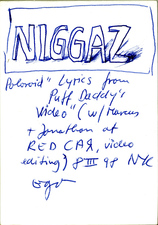 NIGGAZ
Polaroid" Lyrics from
Puff Daddy's
Video" (w/ Marcus
+ Jonathan at
RED CAR, video
editing) 8 III 98 NYC